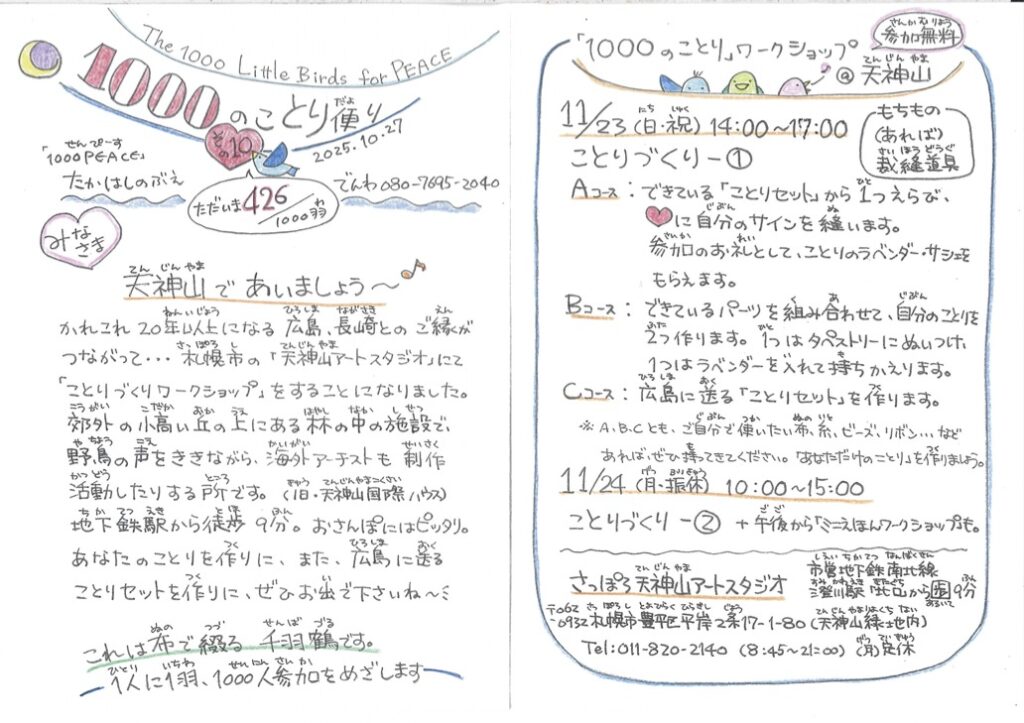 The 1000 Little Birds for PEACE
1000のことり便り
その10
2025.10.27
「1000PEACE」
たかはしのぶえ
ただいま426/1000羽
でんわ080-7695-2040
みなさま
天神山であいましょう〜
かれこれ20年以上になる広島、長崎とのご縁が
つながって・・・札幌市の「天神山アートスタジオ」にて
「ことりづくりワークショップ」をすることになりました。
郊外の小高い丘の上にある林の中の施設で、
野鳥の声をききながら、海外アーテストも制作
活動したりする所です。(旧・天神山国際ハウス)
地下鉄駅から徒歩9分。おさんぽにはピッタリ。
あなたのことりを作りに、また、広島に送る
ことりセットを作りに、ぜひお出で下さいね〜
これは布で綴る千羽鶴です。
1人に1羽、1000人参加をめざします
参加無料
「1000のことり」ワークショップ
@天神山
11/23(日・祝)14:00〜17:00
もちもの
(あれば)
裁縫道具
ことりづくりー①
Aコース:できている「ことりセット」から1つえらび、
♥に自分のサインを縫います。
参加のお礼として、ことりのラベンダー・サシェを
もらえます。
Bコース:できているパーツを組み合わせて、自分のことりを
2つ作ります。1つはタペストリーにぬいつけ、
1つはラベンダーを入れて持ちかえります。
Cコース:広島に送る「ことりセット」を作ります。
※A、B、Cとも、ご自分で使いたい布、糸、ビーズ、リボン…など
あれば、ぜひ持ってきてください。「あなただけのことり」を作りましょう。
11/24(月・振休)10:00〜15:00
ことりづくりー②+午後から「ミニえほんワークショップ」も。
さっぽろ天神山アートスタジオ
市営地下鉄南北線
澄川駅「北口」から歩9分
〒062-0932札幌市豊平区平岸2条17-1-80(天神山緑地内)
Tel:011-820-2140(8:45〜21:00)(月)定休